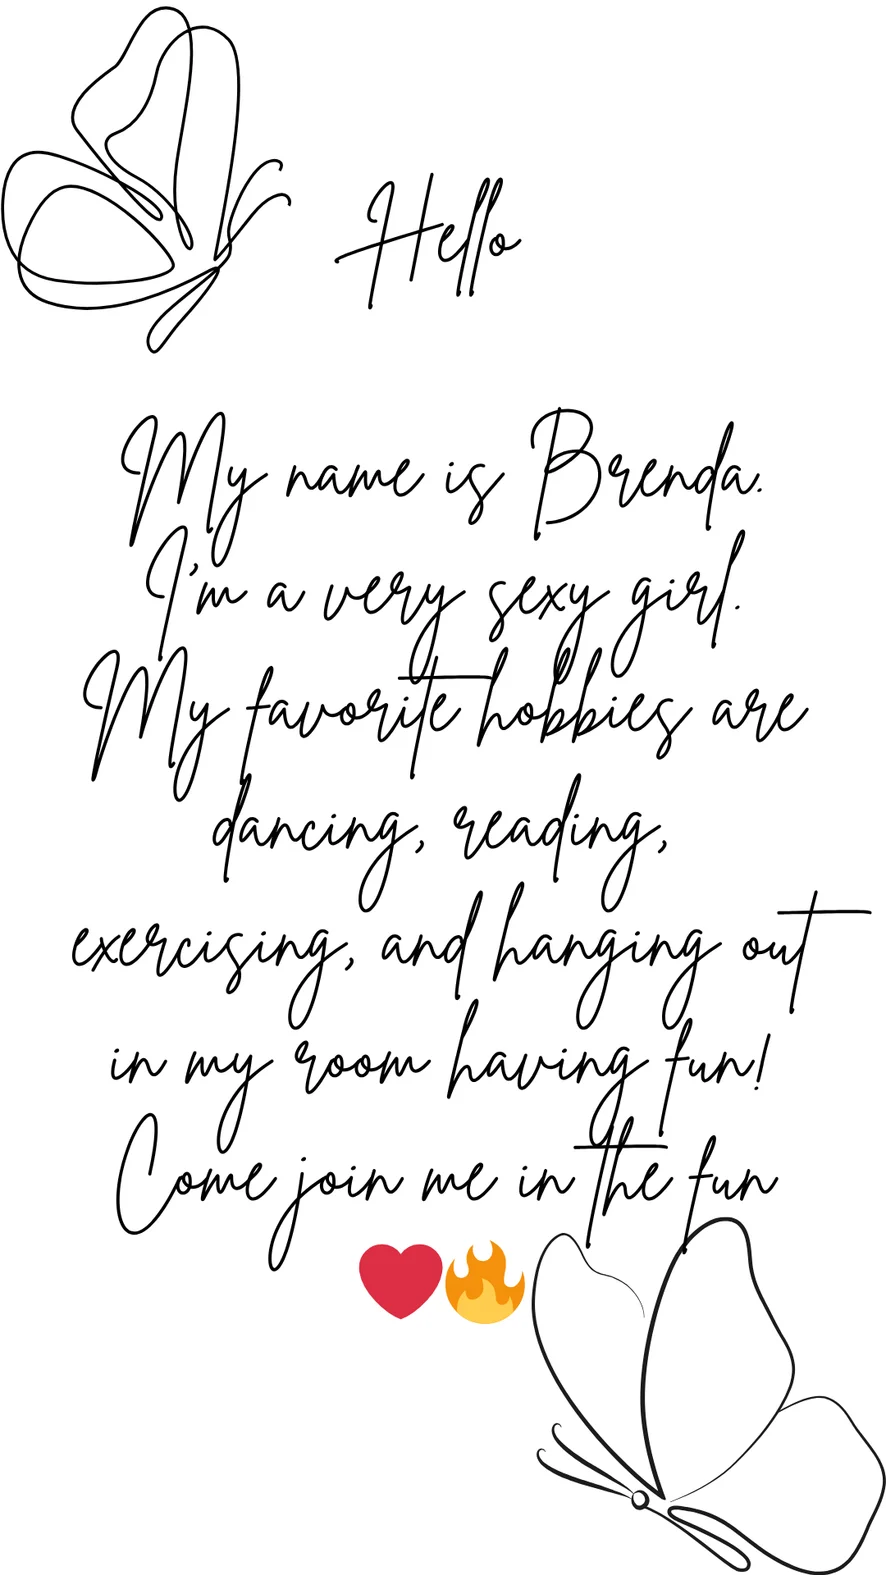 Hello
My name is Brenda.
I'm a very sexy girl.
My favorite hobbies are
dancing, reading,
exercising, and hanging out
in my room having fun!
Come join me in the fun
❤️🔥